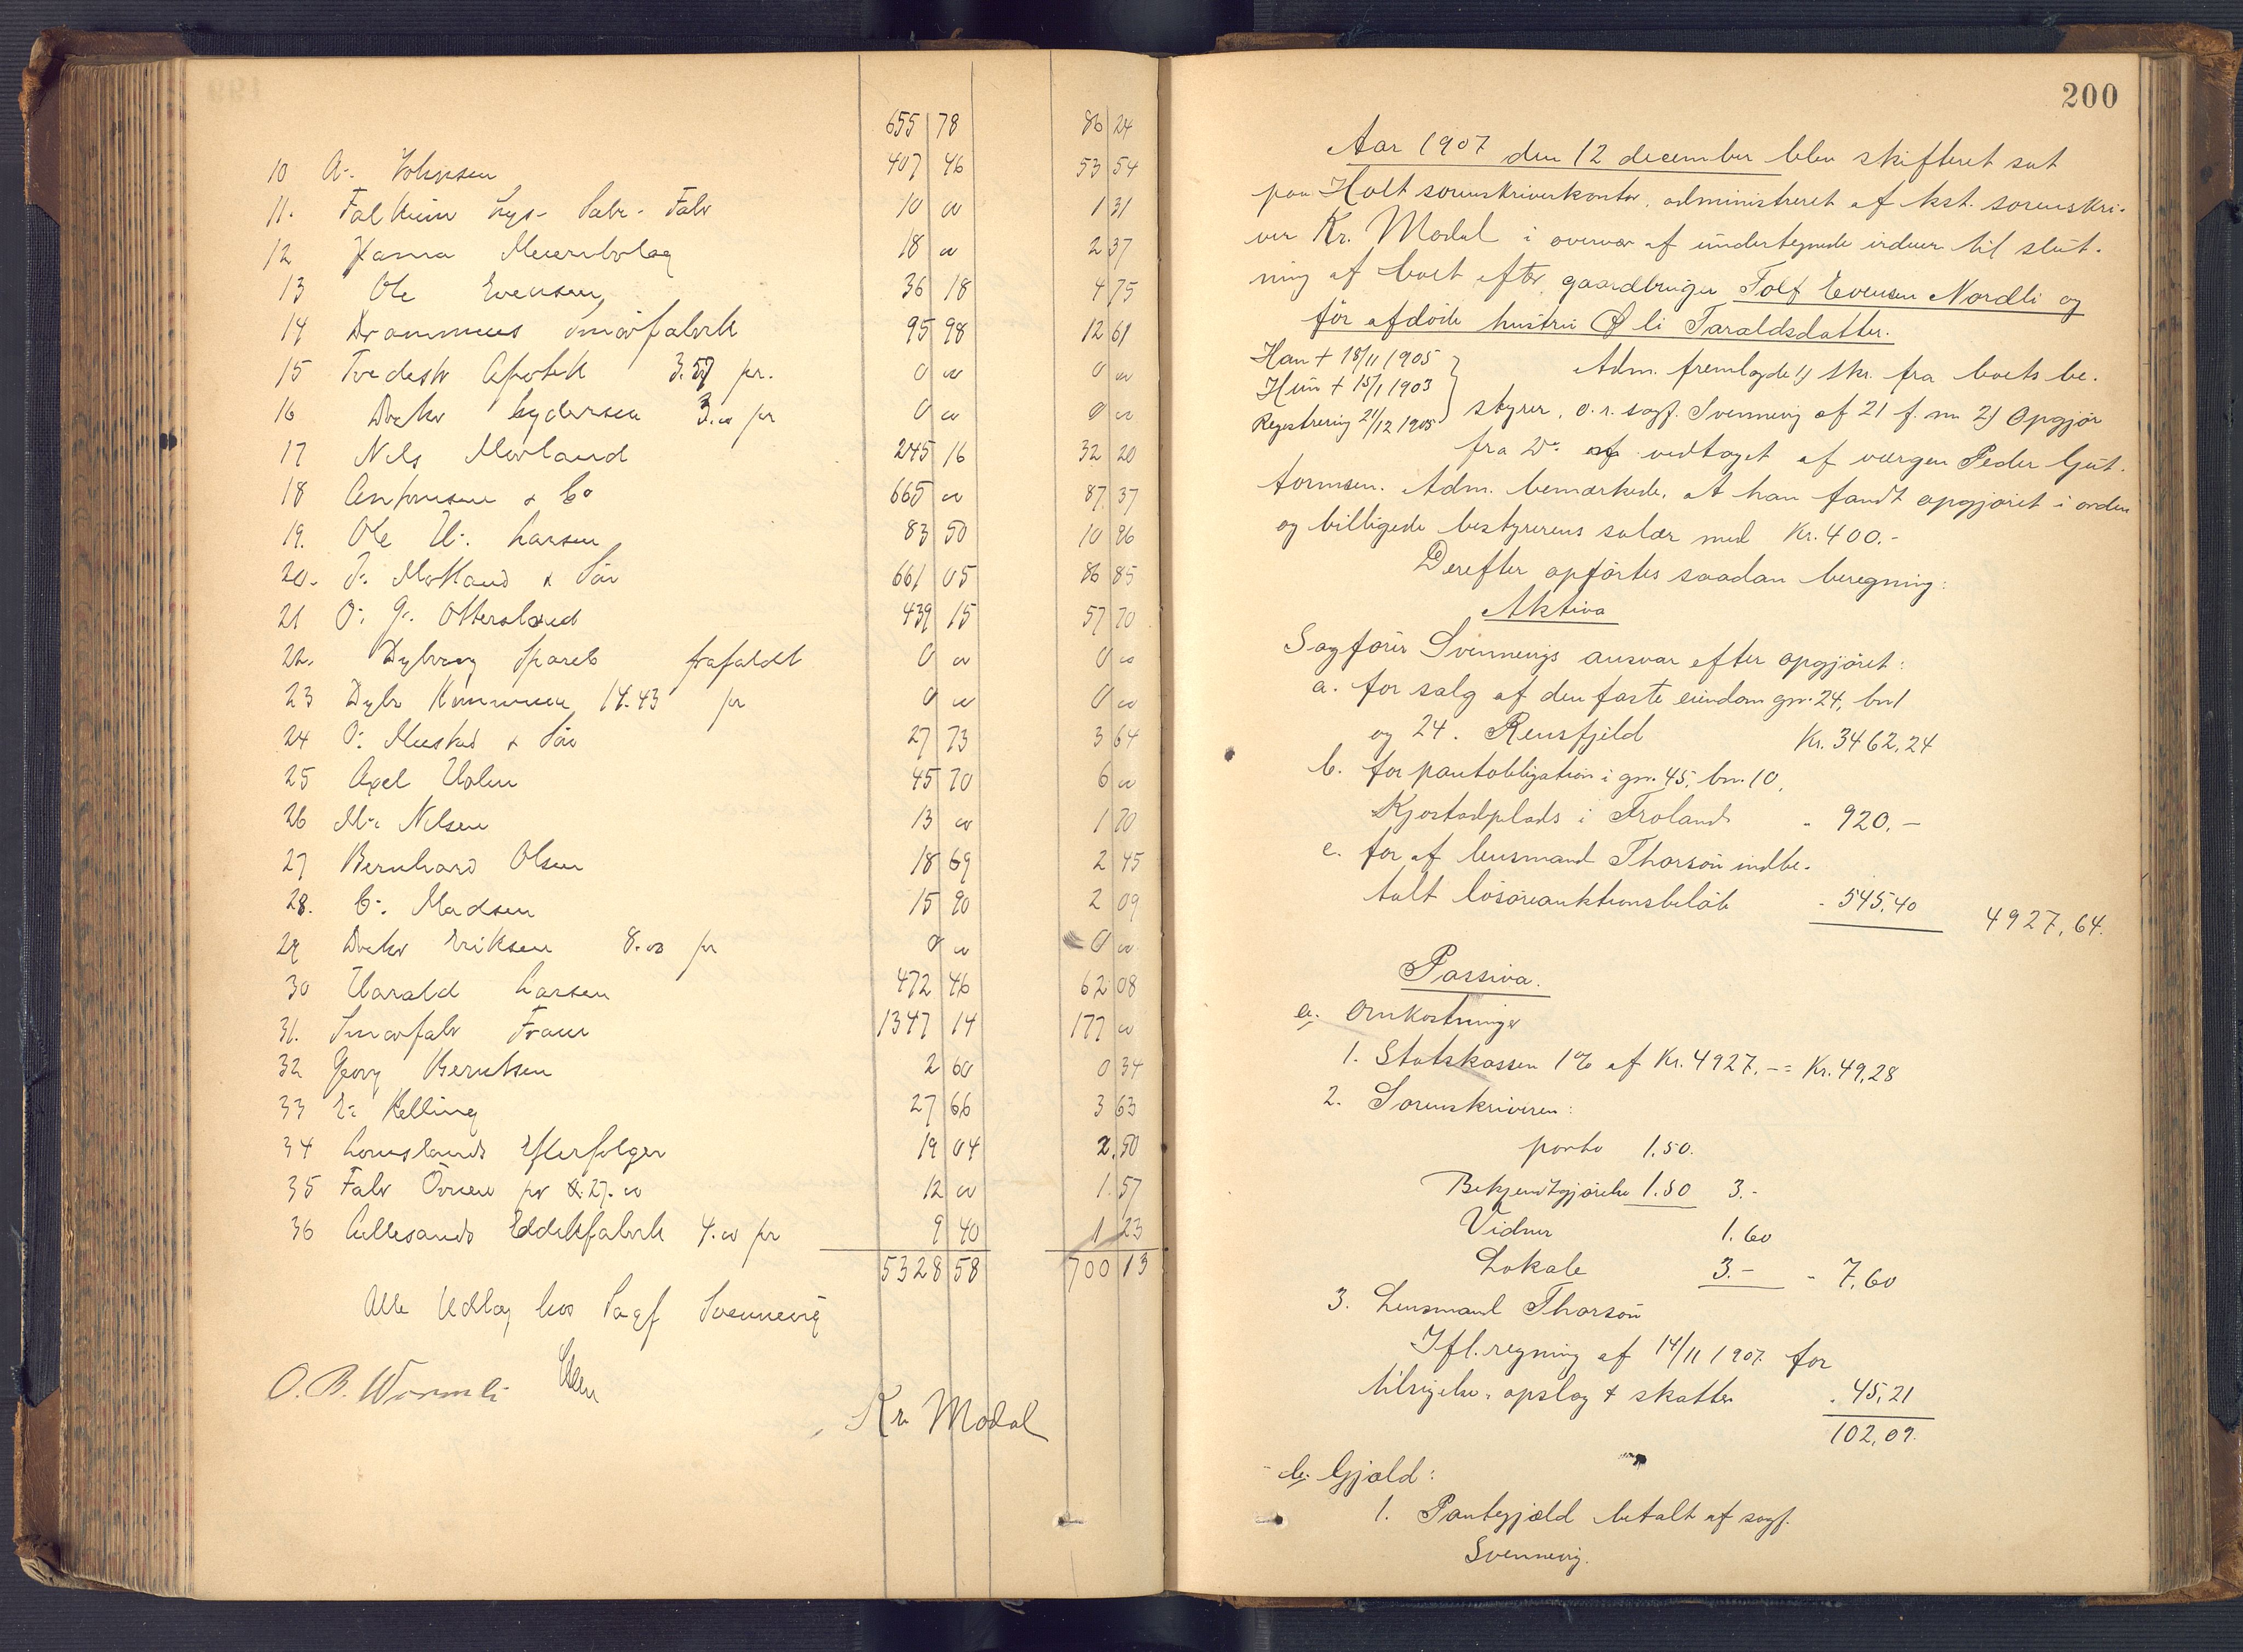 655 78 86 24
10 A. Johnsen 407 46 53 54
11. Falkum Lys- Sæbe- Fabr 10 00 1 31
12 Hanna Meieribolag 18 00 2 37
13 Ole Evensen 36 18 4 75
14 Drammens smörfabrik 95 98 12 61
15 Tvedestr Apotek 3.57 pr. 0 00 0 00
16 Doktor Lydersen 3.00 pr 0 00 0 00
17 Nils Morland 245 16 32 20
18 Antonsen & Co 665 00 87 37
19. Ole H. Larsen 83 50 10 96
20. J. Morland & Sön 661 05 86 85
21 O. G. Ottersland 439 15 57 70
22. Dybvaag Spareb frafaldt 0 00 0 00
23 Dybv Kommune 14.43 pr 0 00 0 00
24 O. Mustad & Sön 27 73 3 64
25 Axel Holm 45 70 6 00
26 M. Nilsen 13 00 1 70
27 Bernhard Olsen 18 69 2 45
28. C. Madsen 15 90 2 09
29 Doktor Eriksen 8.00 pr 0 00 0 00
30 Harald Larsen 472 46 62 08
31. Smörfabr Fram 1347 14 177 00
32 Georg Berntsen 2 60 0 34
33 E. Kelling 27 66 3 63
34 Lomslands Efterfölger 19 04 2.50
35 Fabr Örnen pr 27.00 12 00 1.57
36 Lillesands Eddikfabrik 4.00 pr 9 40 1 23
5328 58 700 13
Alle Udlæg hos Sagf Svennevig
O. B. Wormli
Kr Modal
200
Aar 1907 den 12 december blev skifteret sat
paa Holt sorenskriverkontor, administreret af kst. sorenskri-
ver Kr. Modal i overvær af undertegnede vidner til slut-
ning af boet efter gaardbruger Tolf Evensen Nordli og
før afdöde hustru Oli Taraldsdatter.
Han + 18/11 1905
Hun + 15/1 1903
Registrering 21/12 1905
Adm. fremlagde 1) skr. fra boets be-
styrer, o.r. sagf. Svennevig af 21 f. m. 2) Opgjör
fra Do vedtaget af værgen Peder Gut-
tormsen. Adm. bemærkede, at han fandt opgjöret i orden
og billigede bestyrerens salær med Kr. 400.-
Derefter opförtes saadan beregning:
Aktiva
Sagförer Svennevigs ansvar efter opgjöret:
a. for salg af den faste eiendom gn. 24, bn 1
og 24. Rensfjeld Kr. 3462,24
b. for pantobligation i gn. 45, bn. 10,
Kjostadplads i Froland - 920.-
c. for af lensmand Thorsön indbe-
talt lösöreauktionsbelöb - 545,40 4927,64.
Passiva.
a. Omkostninger
1. Statskassen 1% af Kr. 4927.- = Kr. 49,28
2. Sorenskriveren:
porto 1,50.
Bekjendtgjörelse 1.50 3.-
Vidner 1.60
Lokale 3.- - 7,60
3. Lensmand Thorsön
Ifl. regning af 14/11 1907 for
tilsigelse, opslag & skatter - 45,21
102,09.
b. Gjæld:
1. Pantegjæld betalt af sagf.
Svennevig.